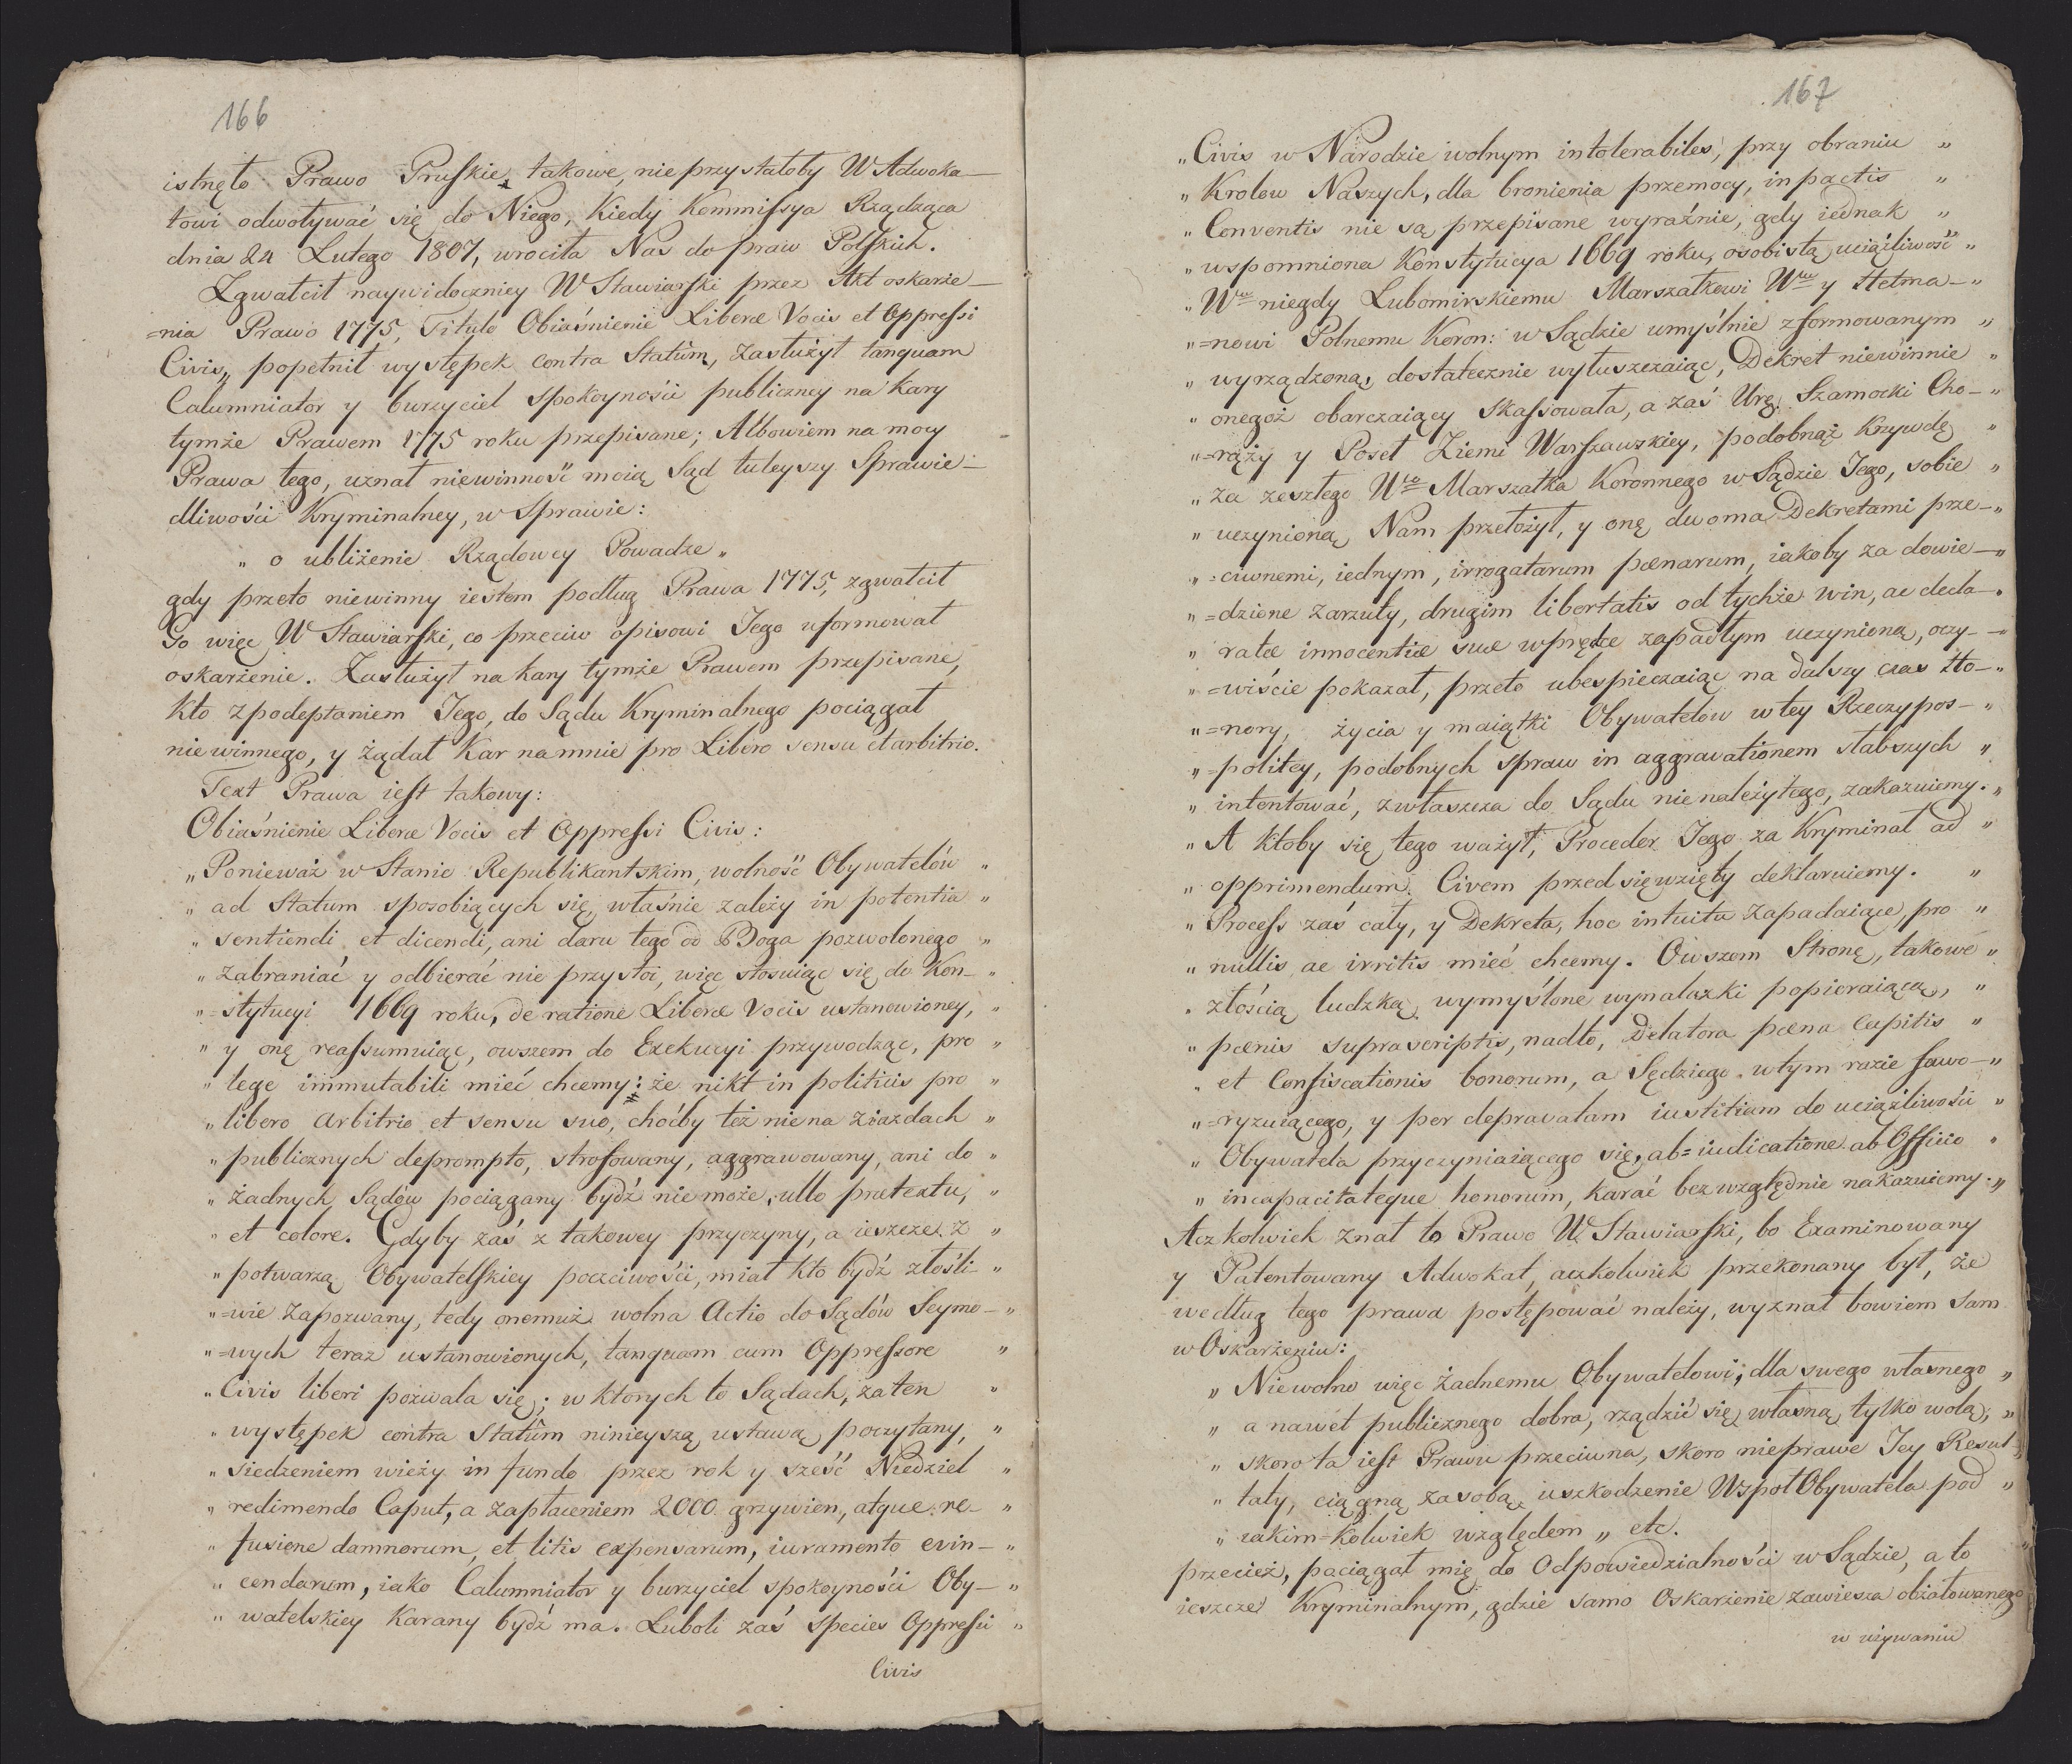 166
istnęło Prawo Pruskie, takowe, nie przystałoby W Adwoka-
towi odwoływać się do Niego, Kiedy Kommissya Rządząca
dnia 24 Lutego 1807, wrociła Nas do praw Polskich.
Zgwałcił naywidoczniey W Stawiarski przez Akt oskarże-
=nia Prawo 1775, Titulo Obiaśnienie Liberæ Vocis et Oppressi
Civis, popełnił występek contra Statûm, zasłużył tanquam
Calumniator y burzyciel spokoyności publiczney na kary
tymże Prawem 1775 roku przepisane; Albowiem na mocy
Prawa tego, uznał niewinność moią Sąd tuteyszy Sprawie-
dliwości Kryminalney, w Sprawie:
„ o ubliżenie Rządowey Powadze „
gdy przeto niewinny iestem podług Prawa 1775, zgwałcił
Go więc W Stawiarski, co przeciw opisowi Jego uformował
oskarżenie. Zasłużył na kary tymże Prawem przepisane,
Kto z podeptaniem Jego, do Sądu Kryminalnego pociągał
niewinnego, y żądał Kar na mnie pro Libero sensu et arbitrio.
Text Prawa iest takowy:
Obiaśnienie Liberæ Vocis et Oppressi Civis:
„ Ponieważ w Stanie Republikantskim, wolność Obywatelów „
„ ad Statum sposobiących się, właśnie zależy in potentia „
„ sentiendi et dicendi, ani daru tego od Boga pozwolonego „
„ zabraniać y odbierać nie przystoi, więc stosuiąc się do Kon- „
„ =stytucyi 1669 roku, de ratione Liberæ Vocis ustanowioney, „
„ y onę reassumuiąc, owszem do Exekucyi przywodząc, pro „
„ lege immutabili mieć chcemy: że nikt in politicis pro „
„ libero arbitrio et sensu suo, choćby też nie na ziazdach „
„ publicznych deprompto, strofowany, aggrawowany, ani do „
„ żadnych Sądów pociągany bydź nie może, ullo pretextu, „
„ et colore. Gdyby zaś z takowey przyczyny, a ieszcze z „
„ potwarzą Obywatelskiey poczciwości, miał kto bydź złośli- „
„ =wie zapozwany, tedy onemuż wolna Actio do Sądów Seymo- „
„ =wych teraz ustanowionych, tanquam cum Oppressore „
„ Civis liberi pozwala się; w ktorych to Sądach, za ten „
„ występek contra Statûm ninieyszą ustawą poczytany, „
„ siedzeniem wieży in fundo przez rok y sześć Niedziel „
„ redimendo Caput, a zapłaceniem 2000 grzywien, atque re- „
„ fusione damnorum, et litis expensarum, iuramento evin- „
„ cendarum, iako Calumniator y burzyciel spokoyności Oby- „
„ watelskiey Karany bydź ma. Luboli zaś species Oppressii „
Civis
167
„ Civis w Narodzie wolnym intolerabiles, przy obraniu „
„ Krolow Naszych, dla bronienia przemocy, in pactis „
„ Conventis nie są przepisane wyraźnie, gdy iednak „
„ wspomniona Konstytucya 1669 roku, osobistą uciążliwość „
„ Wmu niegdy Lubomirskiemu Marszałkowi Wmu y Hetma- „
„ =nowi Polnemu Koron: w Sądzie umyślnie zformowanym „
„ wyrządzoną, dostatecznie wyłuszczaiąc, Dekret niewinnie „
„ onegoż obarczaiący skassowała, a zaś Urę. Szamocki Cho- „
„ =rąży y Poseł Ziemi Warszawskiey, podobnąż Krzywdę „
„ za zeszłego Wgo Marszałka Koronnego w Sądzie Jego, sobie „
„ uczynioną, Nam przełożył, y onę dwoma Dekretami prze- „
„ =ciwnemi, iednym, irrogatarum pœnarum, iakoby za dowie- „
„ =dzione zarzuty, drugim libertatis od tychże win, ac decla- „
„ ratæ innocentiæ suæ wprędce zapadłym uczynioną, oczy- „
„ =wiście pokazał, przeto ubespieczaiąc na dalszy czas Ho- „
„ =nory, życia y maiątki Obywatelow w tey Rzeczypos- „
„ =politey, podobnych spraw in aggravationem słabszych „
„ intentować, zwłaszcza do Sądu nienależytego, zakazuiemy. „
„ A ktoby się tego ważył, Proceder Jego za Kryminał ad „
„ opprimendum Civem przedsięwzięty deklaruiemy. „
„ Process zaś cały, y Dekreta, hoc intuitu zapadaiące, pro „
„ nullis ac irritis mieć chcemy. Owszem Stronę, takowe „
„ złością ludzką wymyślone wynalazki popieraiącą, „
„ pœnis suprascriptis, nadto, Delatora pœna Capitis „
„ et Confiscationis bonorum, a Sędziego w tym razie fawo- „
„ =ryzuiącego, y per depravatam iustitiam do uciążliwości „
„ Obywatela przyczyniaiącego się, ab=iudicatione ab Officio „
„ incapacitateque honorum, karać bezwzględnie nakazuiemy. „
Aczkolwiek znał to Prawo W. Stawiarski, bo Examinowany
y Patentowany Adwokat, aczkolwiek przekonany był, że
według tego prawa postępować należy, wyznał bowiem sam
w Oskarżeniu:
„ Niewolno więc żadnemu Obywatelowi, dla swego własnego „
„ a nawet publicznego dobra, rządzić się własną tylko wolą, „
„ skoro ta iest Prawu przeciwna, skoro nieprawe Jey Resul- „
„ taty, ciągną za sobą uszkodzenie WspołObywatela pod „
„ iakim=kolwiek względem „ etc.
przecież, pociągał mię do Odpowiedzialności w Sądzie, a to
ieszcze Kryminalnym, gdzie samo Oskarżenie zawiesza obżałowanego
w używaniu